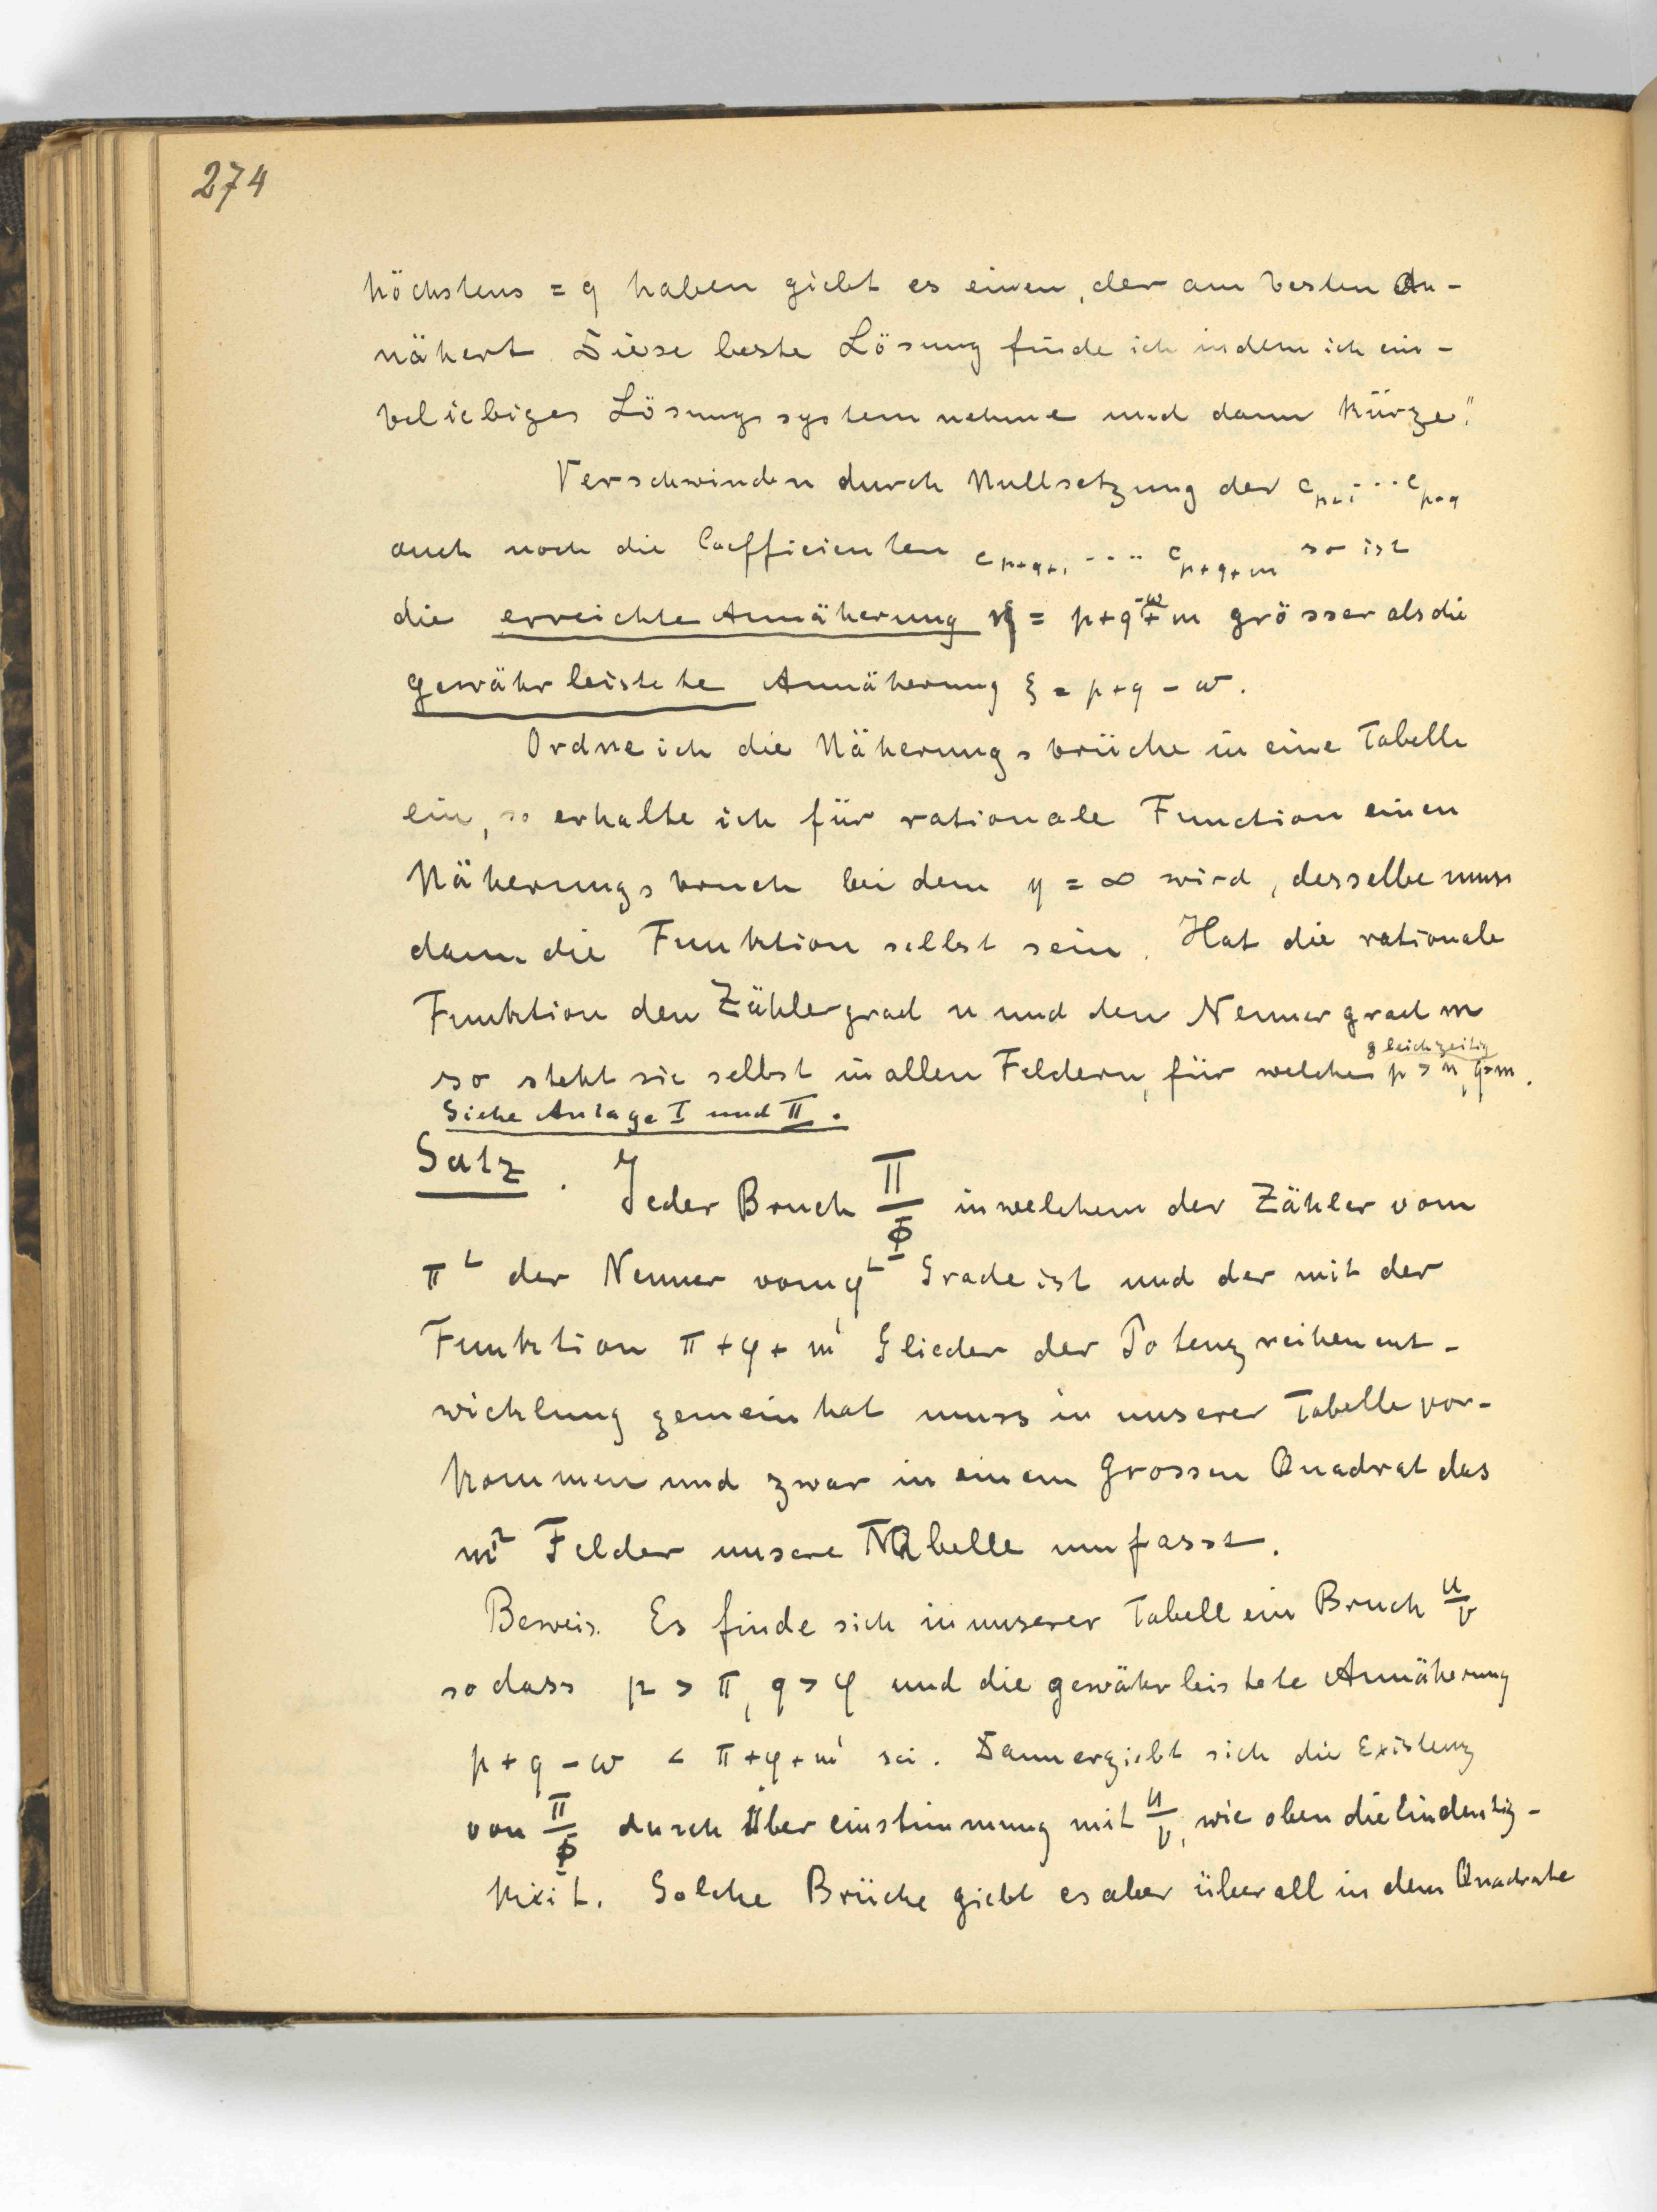 274
höchstens = q haben giebt es einen, der am besten an-
nähert. Diese beste Lösung finde ich indem ich ein-
beliebiges Lösungssystem nehme und dann kürze."
Verschwinden durch Nullsetzung der c_{p+1}...c_{p+q}
auch noch die Coefficienten c_{p+q+1} .... c_{p+q+m} so ist
die erreichte Annäherung η = p+q-w+m grösser als die
gewährleistete Annäherung ξ = p+q-w.
Ordne ich die Näherungsbrüche in eine Tabelle
ein, so erhalte ich für rationale Function einen
Näherungsbruch bei dem η = ∞ wird, desselbe muss
dann die Funktion selbst sein. Hat die rationale
Funktion den Zählergrad n und den Nennergrad m
gleichzeitig
so steht sie selbst in allen Feldern, für welche p > n, q>m.
Siehe Anlage I und II.
Satz. Jeder Bruch Π/Φ in welchem der Zähler vom
π^t der Nenner vom φ^t Grade ist und der mit der
Funktion π+φ+m' Glieder der Potenzreihenent-
wicklung gemein hat muss in unserer Tabelle vor-
kommen und zwar in einem Grossen Quadrat das
m'² Felder unsere Tabelle umfasst.
Beweis. Es finde sich in unserer Tabell ein Bruch u/v
sodass p > π, q > φ und die gewährleistete Annäherung
p+q-w < π+φ+m' sei. Dann ergiebt sich die Existenz
von Π/Φ durch Übereinstimmung mit u/v, wie oben die Eindeutig-
keit. Solche Brüche giebt es aber überall in dem Quadrate